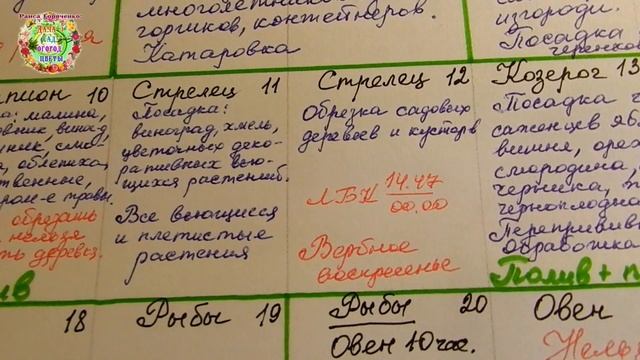 Раиса Горяченко
ДАЧА
САД
ОГОРОД
ЦВЕТЫ
многолетник
горшков, контейнеров.
Катаровка
изгороди.
Посадка
черенков
пион 10
малина,
овник, виногд
облепиха,
ственные,
обрезать
нельзя
ть деревья.
ив
Стрелец 11
Посадка:
виноград, хмель,
цветочных деко-
ративных вью-
щихся растений.
Все вьющиеся
и плетистые
растения
Стрелец 12
Обрезка садовых
деревьев и кустарв
ЛБК 14.47
00.00
Вербное
воскресенье
Козерог 13
Посадка
саженцев ябл
вишня, оре
смородина,
черника,
черноплодна
Перепрививк
обработка
Полив + п
18
Рыбы 19
Рыбы 20
Овен 10 час.
Овен
Нель